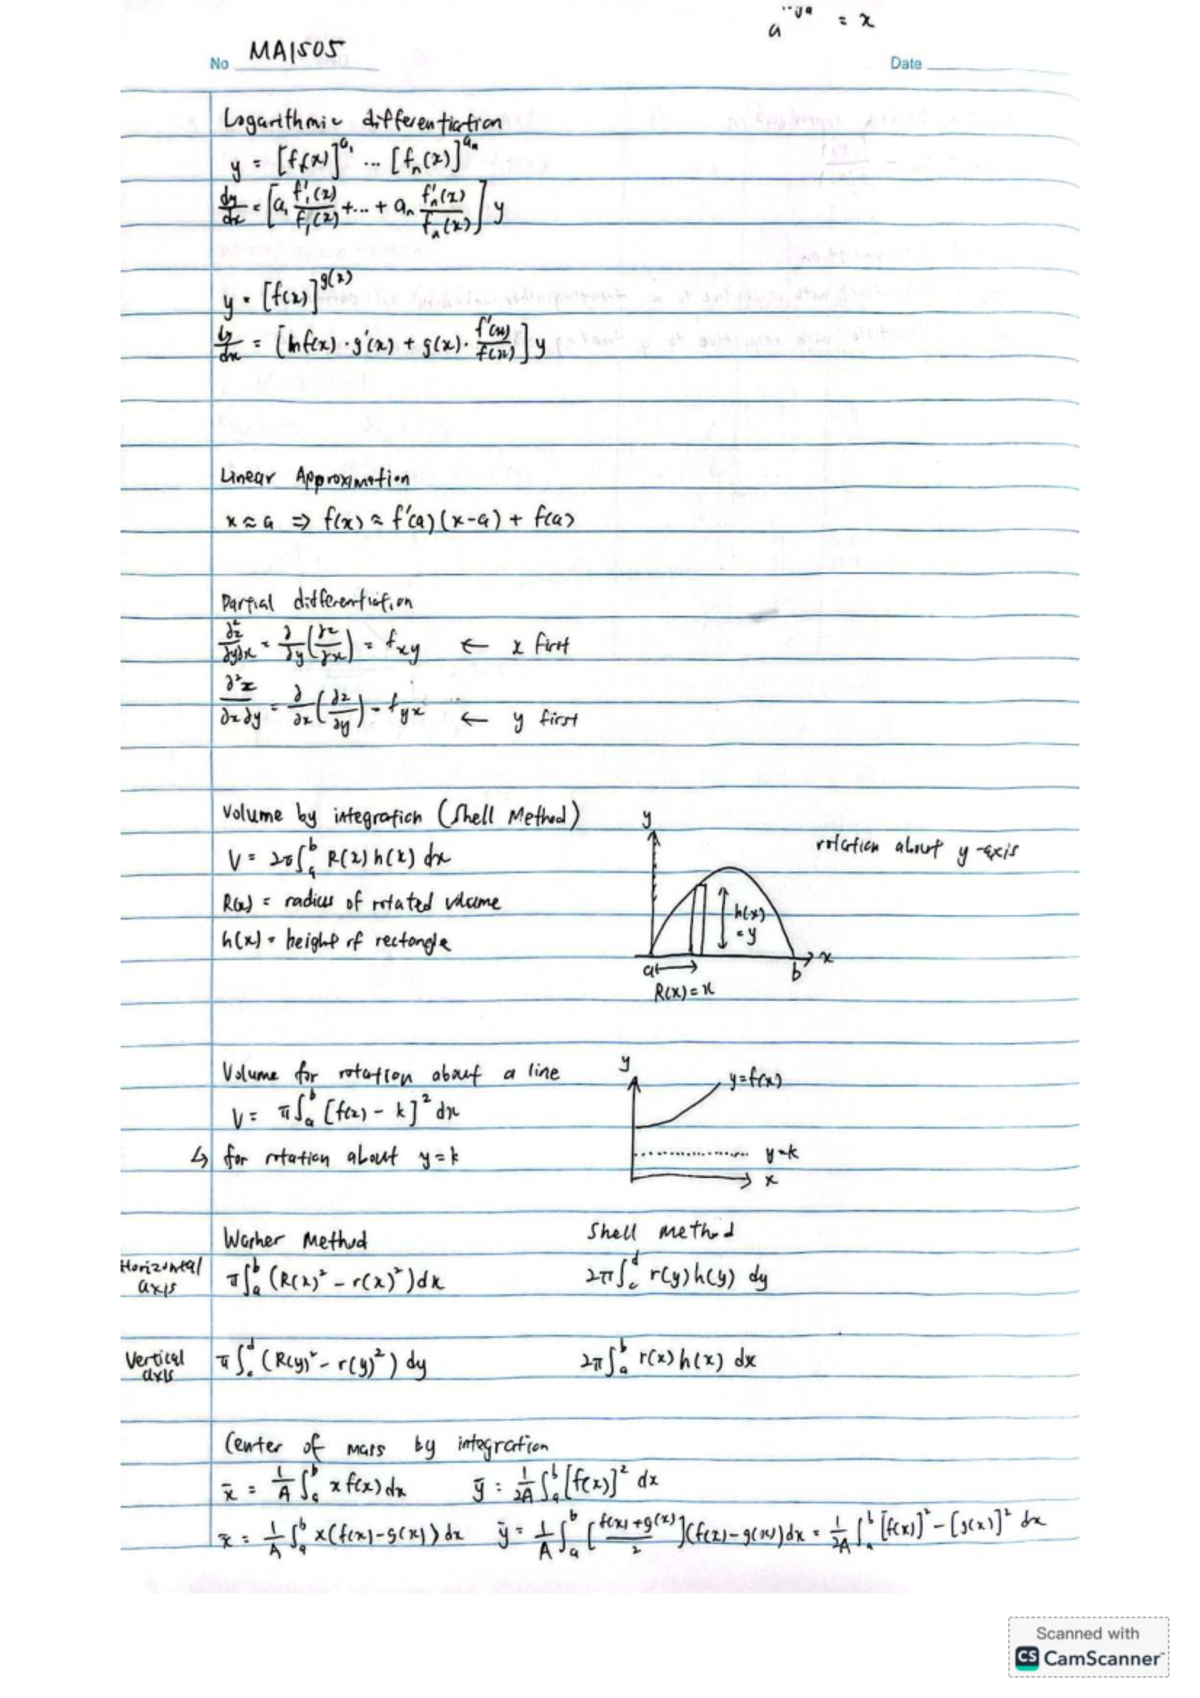 a = x
No MA1505
Date
Logarithmic differentiation
y = [f₁(x)]^a₁ ... [fₙ(x)]^aₙ
dy/dx = [a₁ f₁'(x)/f₁(x) + ... + aₙ fₙ'(x)/fₙ(x)] y
y = [f(x)]^g(x)
dy/dx = [ln f(x) · g'(x) + g(x) · f'(x)/f(x)] y
Linear Approximation
x ≈ a ⇒ f(x) ≈ f'(a)(x-a) + f(a)
Partial differentiation
∂²z/∂y∂x = ∂/∂y (∂z/∂x) = f_xy ← x first
∂²z/∂x∂y = ∂/∂x (∂z/∂y) = f_yx ← y first
Volume by integration (Shell Method)
V = 2π∫_a^b R(x) h(x) dx
R(x) = radius of rotated volume
h(x) = height of rectangle
y
rotation about y-axis
h(x)
= y
a b x
R(x) = x
Volume for rotation about a line
V = π∫_a^b [f(x) - k]² dx
↳ for rotation about y=k
y
y=f(x)
y=k
x
Washer Method Shell method
Horizontal axis π∫_a^b (R(x)² - r(x)²) dx 2π∫_c^d r(y) h(y) dy
Vertical axis π∫_c^d (R(y)² - r(y)²) dy 2π∫_a^b r(x) h(x) dx
Center of mass by integration
x̄ = 1/A ∫_a^b x f(x) dx ȳ = 1/2A ∫_a^b [f(x)]² dx
x̄ = 1/A ∫_a^b x(f(x) - g(x)) dx ȳ = 1/A ∫_a^b [f(x)+g(x)/2](f(x) - g(x)) dx = 1/2A ∫_a^b [f(x)]² - [g(x)]² dx
Scanned with
CS CamScanner